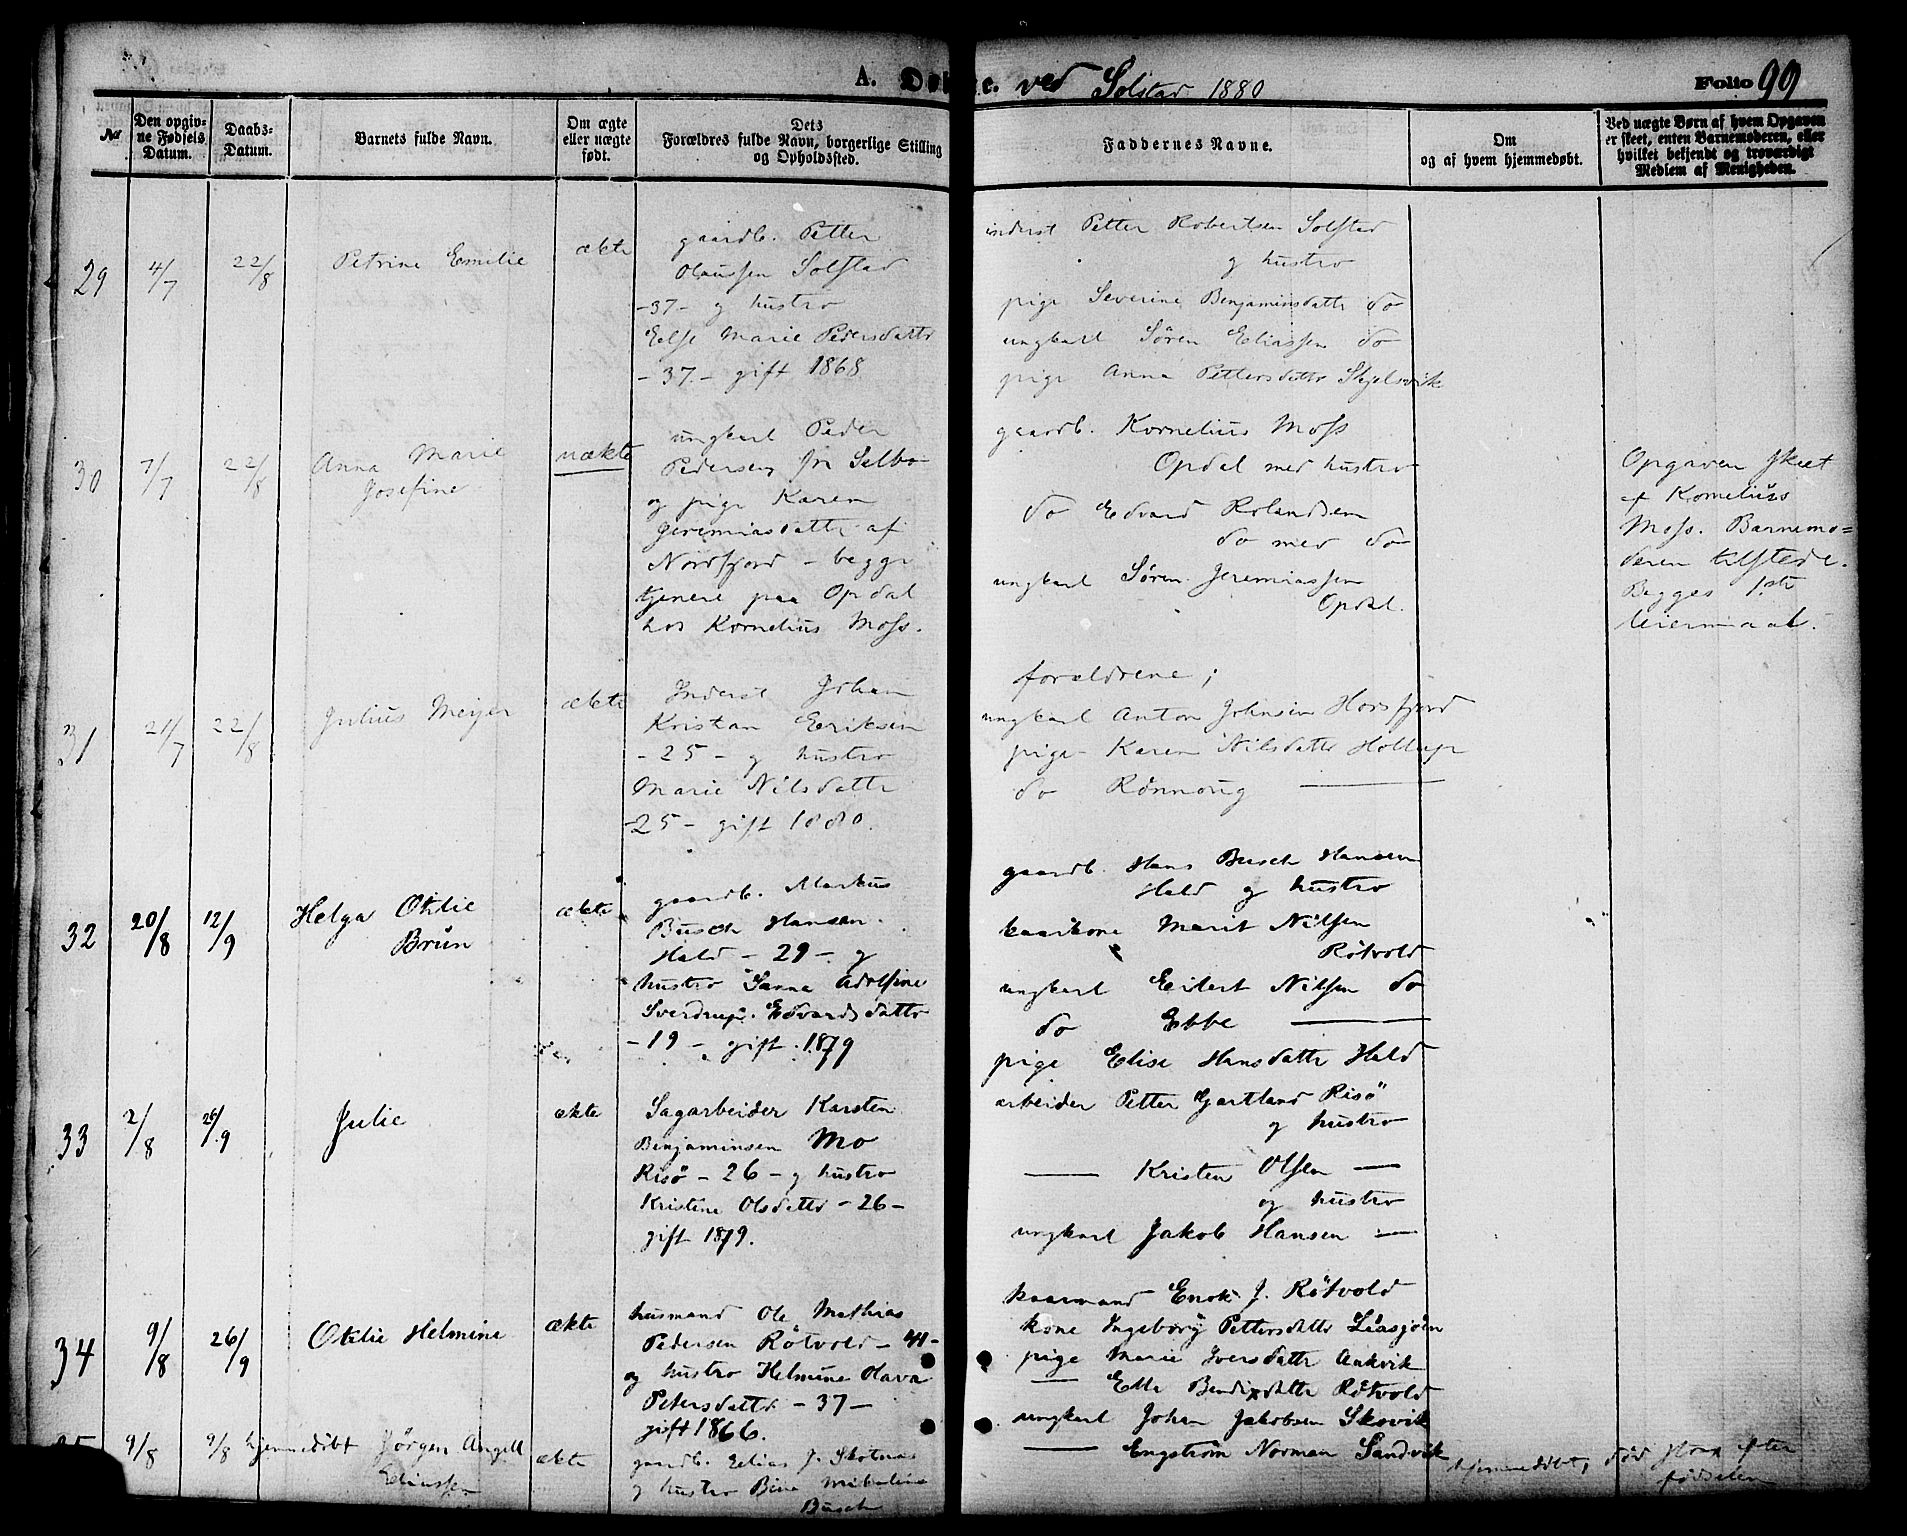 A. Døbte. ved Solstad 1880
Folio 99
No
Den opgivne Fødsels Datum.
Daabs-Datum.
Barnets fulde Navn.
Om ægte eller uægte født.
Dets Forældres fulde Navn, borgerlige Stilling og Opholdssted.
Faddernes Navne.
Om og af hvem hjemmedøbt.
Ved uægte Børn af hvem Opgaven er skeet, enten Barnemoderen, eller hvilket bekjendt og troværdigt Medlem af Menigheden.
29 4/7 22/8 Petrine Emilie ækte
gaardb. Petter
Olaussen Solstad
-37- og hustro
Else Marie Pedersdattr
-37- gift 1868
inderst Petter Robertsen Solstad
og hustro
pige Severine Benjaminsdattr do
ungkarl Søren Eliassen do
pige Anna Pettersdattr Skjelsvik
30 7/7 22/8 Anna Marie
Josefine
uækte
ungkarl Peder
Pedersen fr Selbo
og pige Karen
Jeremiasdattr af
Nordfjord - begge
tjenere paa Opdal
hos Kornelius Moss.
gaardb. Kornelius Moss
Opdal med hustro
do Edvard Rolandsen
do med do
ungkarl Søren Jeremiassen
Opdal.
Opgaven skeet
af Kornelius
Moss. Barnemo=
deren tilstede.
Begges 1ste
leiermaal.
31 21/7 22/8 Julius Meyer ækte
Inderst Johan
Kristian Eriksen
-25- og hustro
Marie Nilsdattr
-25- gift 1880.
forældrene;
ungkarl Anton Johnsen Horsfjord
pige Karen Nilsdattr Hollup
do Rønnoug —
32 20/8 12/9 Helga Otilie
Brun
ækte
gaardb. Markus
Busch Hansen
Hald - 29 - og
hustro Sanna Adolfine
Sverdrup Edvardsdattr
-19- gift 1879
gaardb. Hans Busch Hansen
Hald og hustro
kaarkone Marit Nilsen
Røtvold
ungkarl Eilert Nilsen do
do Ebbe —
pige Elise Hansdattr Hald
33 2/8 26/9 Julie ækte
Sagarbeider Karsten
Benjaminsen Mo
Risö - 26 - og hustro
Kristine Olsdattr - 26 -
gift 1879.
arbeider Petter Gartland Risö
og hustro
— Kristen Olsen —
og hustro
ungkarl Jakob Hansen —
34 9/8 26/9 Otilie Helmine ækte
husmand Ole Mathias
Pedersen Røtvold - 41 -
og hustro Helmine Olava
Petersdattr - 37 -
gift 1866.
kaarmand Enok J. Røtvold
kone Ingeborg Pettersdattr
pige Marie Iversdattr Aakvik
— Elle Bendixdattr Røtvold
ungkarl Johan Jakobsen Skovik
— Engstrøm Norman Sandvik
35 9/8 9/8 hjemmedöbt Jörgen Angell
Eliassen
ækte
gaardb. Elias J. Skotnes
og hustro Bina
Busch
hjemmedöbt, död strax efter
födselen